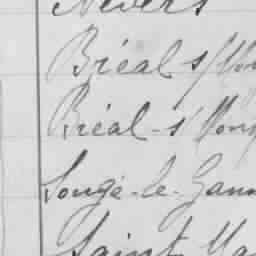 Nevers
Bréal s/Von
Bréal-s/Von
Lougé-le-Gann
Saint Ma